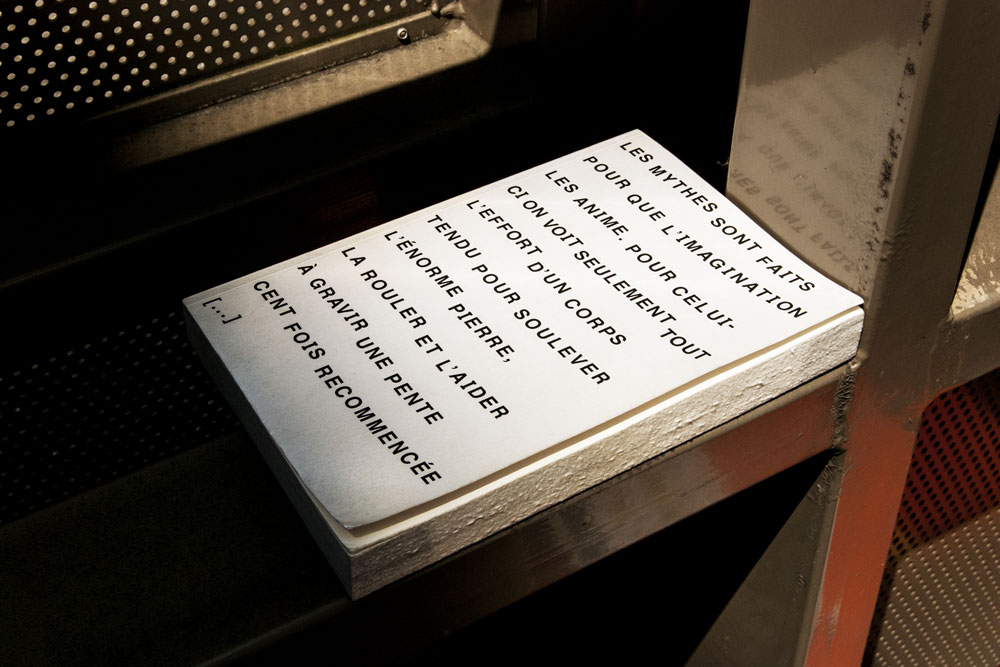 LES MYTHES SONT FAITS
POUR QUE L'IMAGINATION
LES ANIME. POUR CELUI-
CI ON VOIT SEULEMENT TOUT
L'EFFORT D'UN CORPS
TENDU POUR SOULEVER
L'ÉNORME PIERRE,
LA ROULER ET L'AIDER
À GRAVIR UNE PENTE
CENT FOIS RECOMMENCÉE
[...]